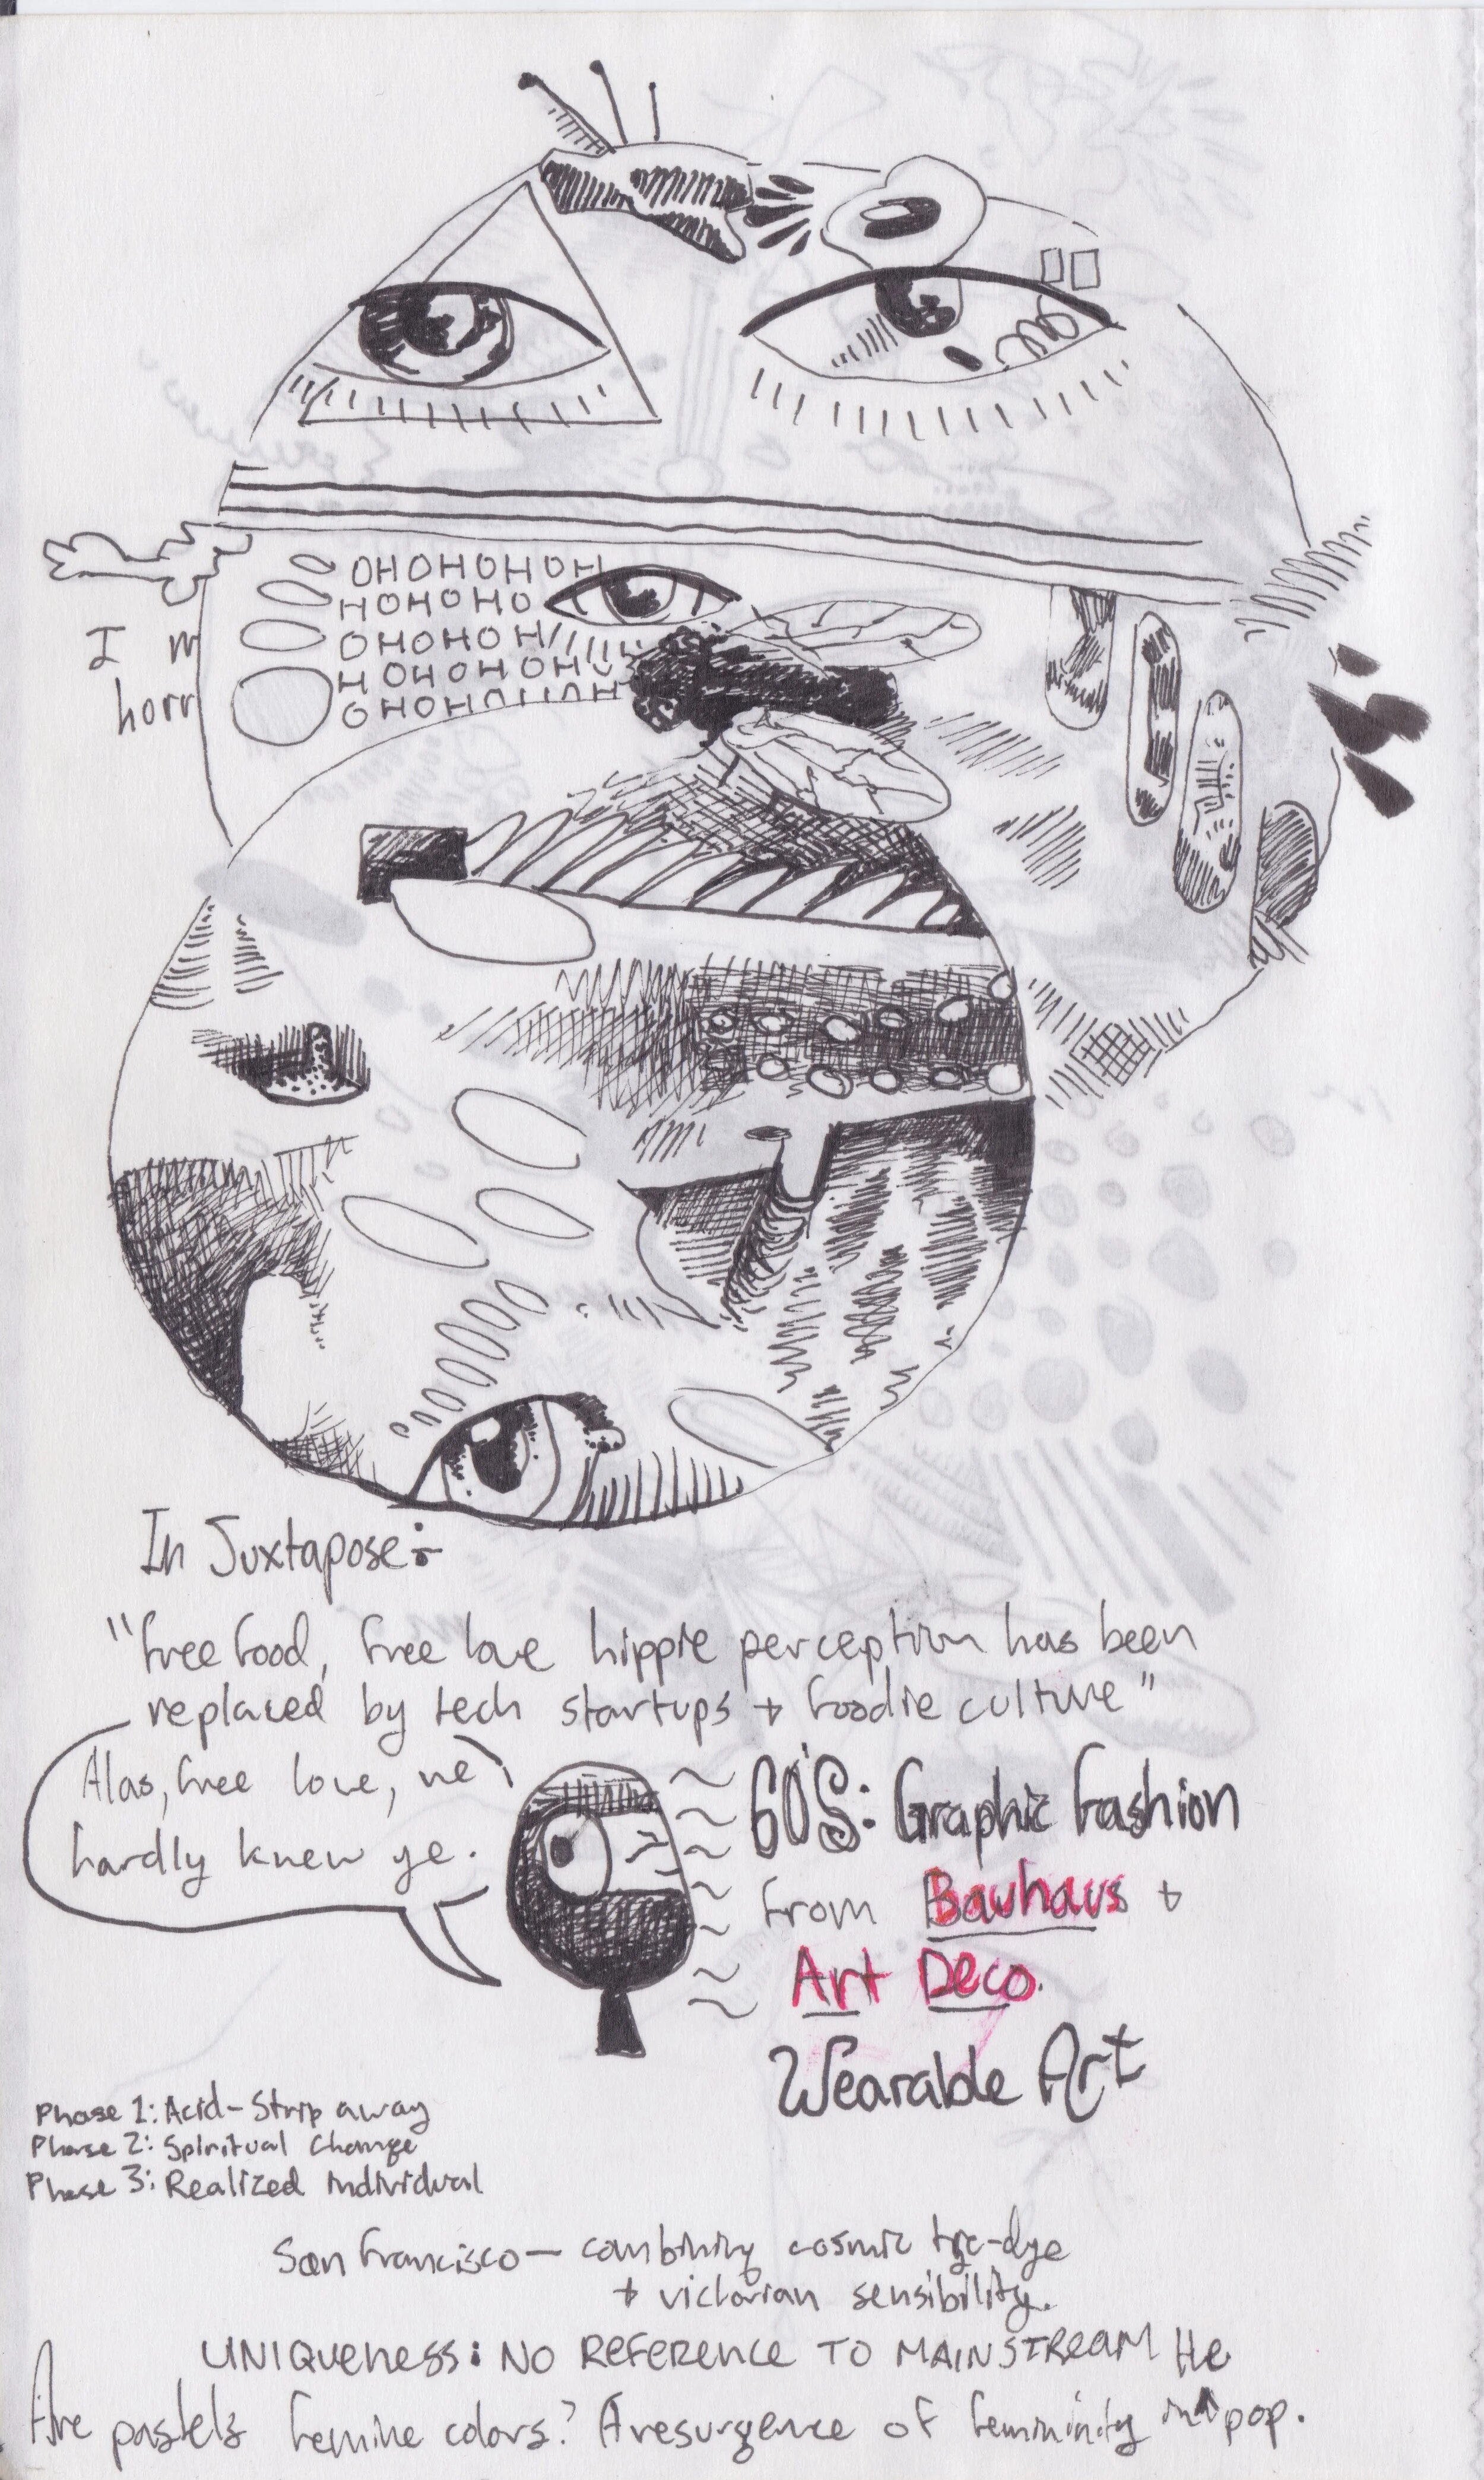 OHOHOHOH
HOHOHO
OHOHOH
HOHOHOH
OHOH
I m
horr
In Juxtapose:
"free food, free love hippie perception has been
replaced by tech startups + foodie culture"
Alas, free love, we
hardly knew ye.
60'S: Graphic fashion
from Bauhaus +
Art Deco.
Wearable Art
Phase 1: Acid-Strip away
Phase 2: Spiritual Change
Phase 3: Realized individual
San Francisco— combining cosmic tye-dye
+ victorian sensibility.
UNIQUENESS: NO REFERENCE TO MAINSTREAM He
Are pastels femine colors? A resurgence of femininity in pop.